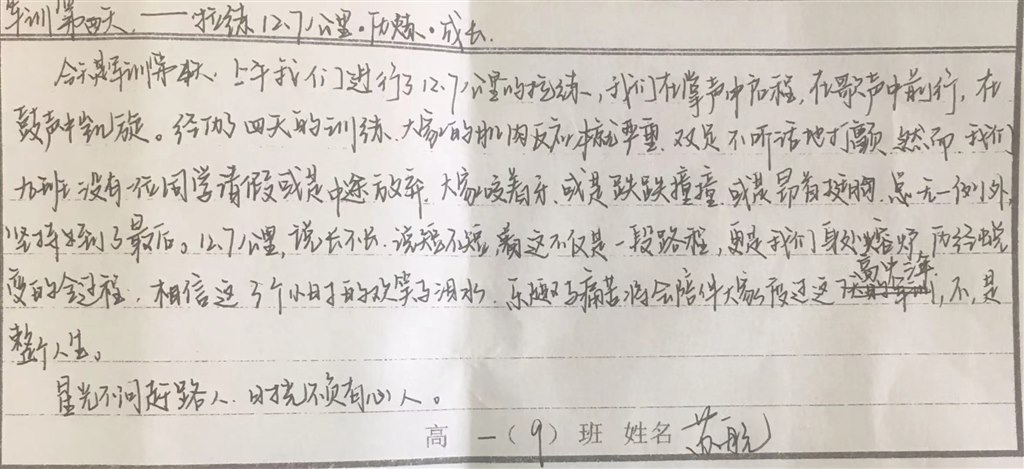 军训第四天 ——拉练12.7公里·历炼·成长
今天是军训第四天,上午我们进行了12.7公里的拉练,我们在掌声中启程,在歌声中前行,在
鼓声中凯旋。经历了四天的训练,大家的肌肉反应本就严重,双足不听话地打颤,然而,我们
九班没有一位同学请假或是中途放弃,大家咬着牙,或是跌跌撞撞,或是昂首挺胸,总无一例外,
坚持到了最后。12.7公里,说长不长,说短不短,这不仅是一段路程,更是我们身处熔炉,历经蜕
变的全过程,相信这3个小时的欢笑与泪水,乐趣与痛苦将会陪伴大家度过这高中三年,不,是
整个人生。
星光不问赶路人,时光不负有心人。
高一(9)班 姓名 苏航